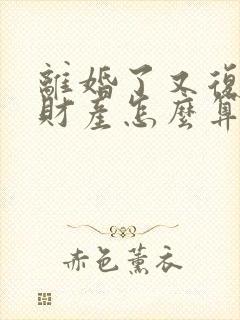 離婚了又復
財產怎麼算
赤色薰衣